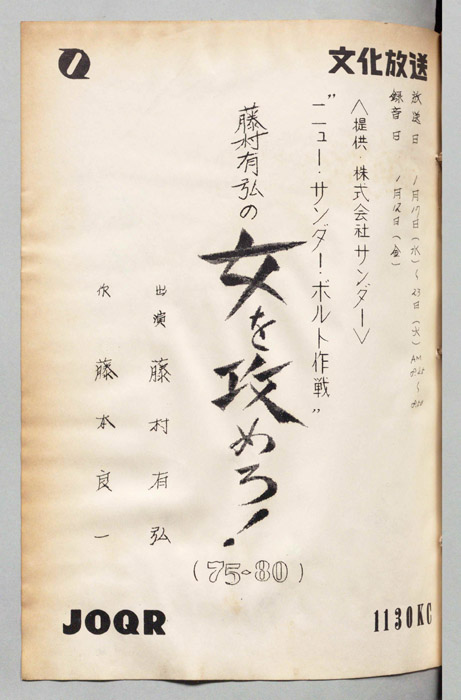 文化放送
放送日 1月17日（水）〜23日（火）AM
録音日 1月12日（金）
〈提供・株式会社サンダー〉
"ニュー・サンダー・ボルト作戦"
藤村有弘の
女を攻めろ!
(75-80)
出演 藤村有弘
作 藤本良一
JOQR
1130KC